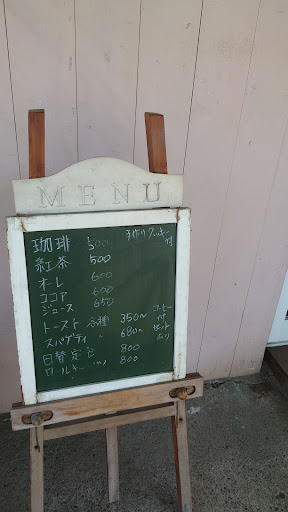 MENU
珈琲 500 手作りクッキー付
紅茶 500
オーレ 600
ココア 600
ジュース 650
トースト 各種 350〜 コーヒー付
スパゲティ 〃 680〜 セットあり
日替定食 800
ロール 800